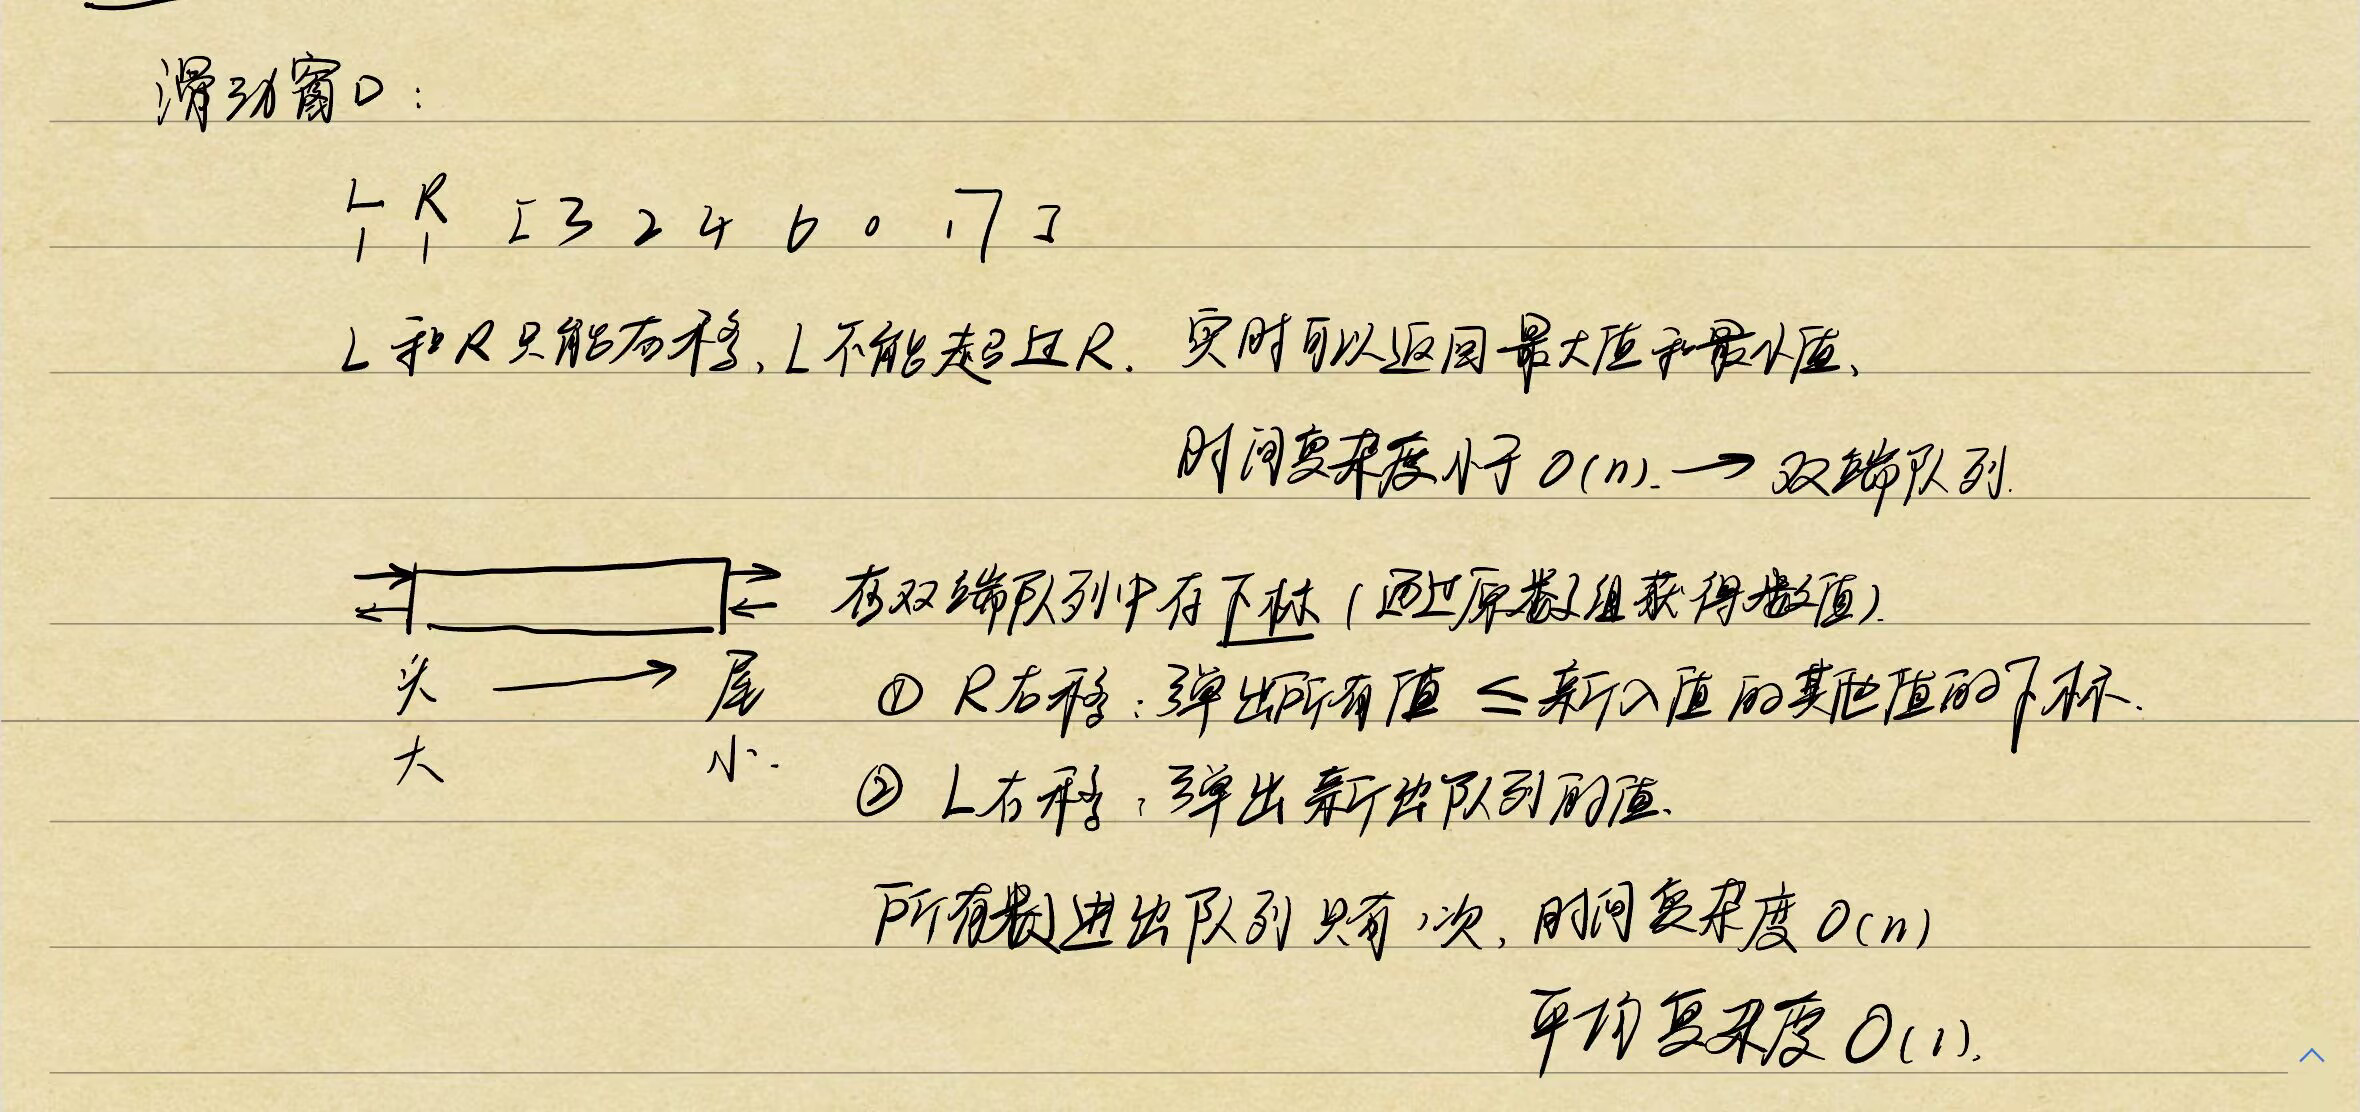 滑动窗口：
L R [3 2 4 6 0 1 7]
L和R只能右移，L不能超过R. 实时可以返回最大值和最小值、
时间复杂度小于O(n). → 双端队列.
在双端队列中存下标（通过原数组获得数值）.
头 → 尾 ① R右移：弹出所有值 ≤ 新入值的其他值的下标.
大 小. ② L右移：弹出新出队列的值.
所有数进出队列只有1次，时间复杂度O(n)
平均复杂度O(1).